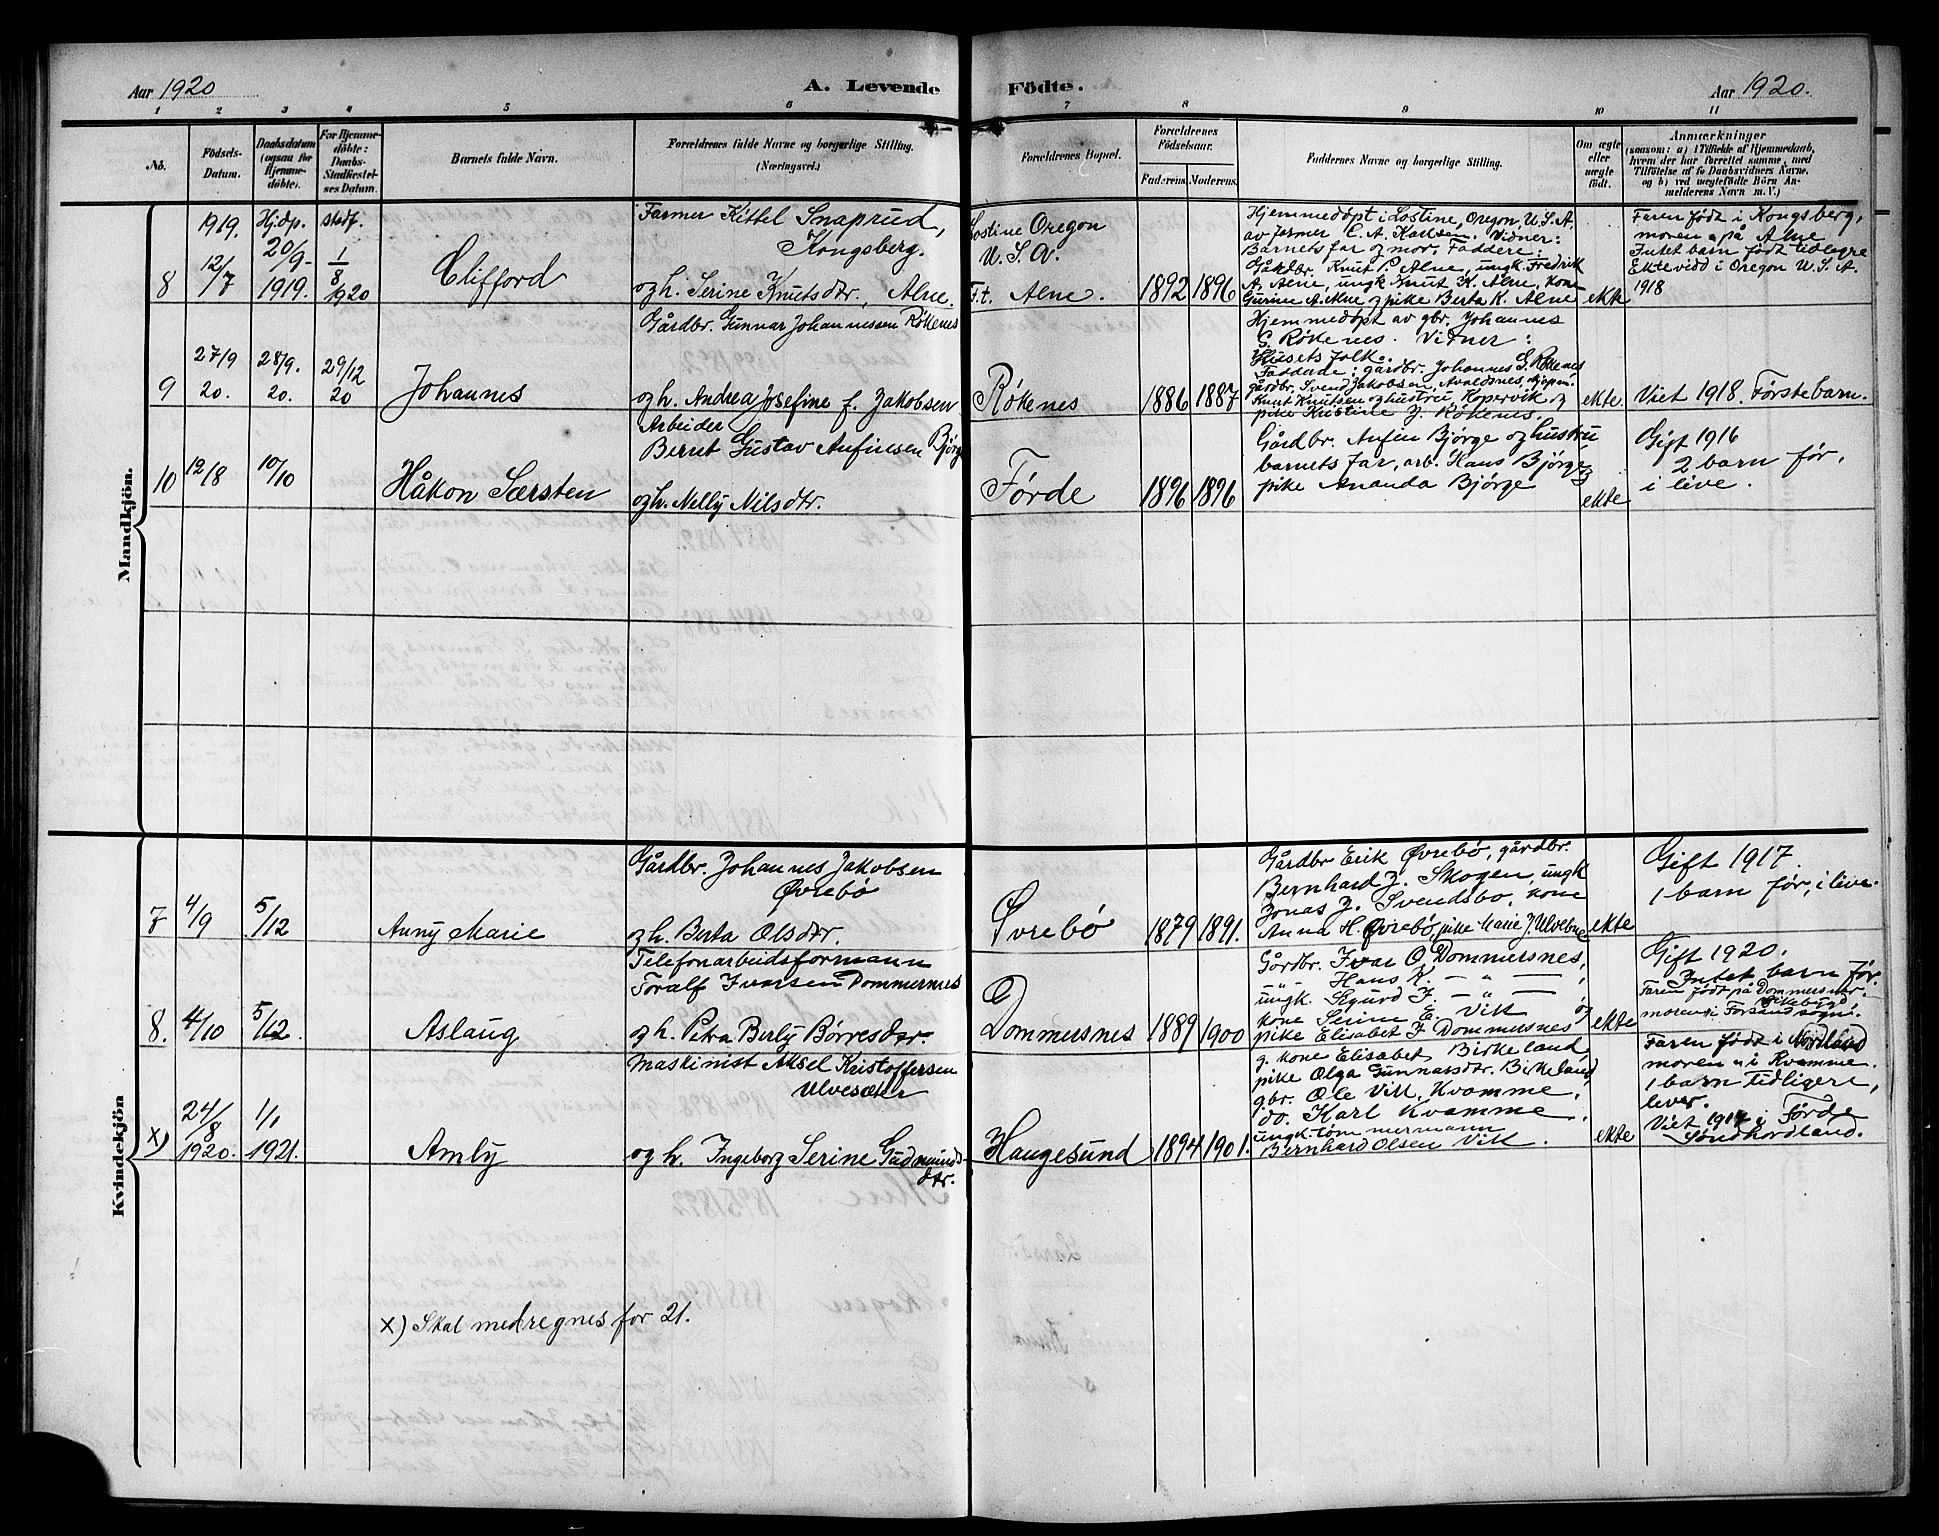 Aar 1920
A. Levende Födte.
Aar 1920.
1 2 3 4 5 6 7 8 9 10 11
No.
Födsels-
Datum.
Daabsdatum
(ogsaa for
Hjemme-
döbte).
For Hjemme-
döbte:
Daabs-
Stadfæstel-
ses Datum.
Barnets fulde Navn.
Forældrenes fulde Navne og borgerlige Stilling.
(Næringsvei.)
Forældrenes Bopæl.
Forældrenes
Födselsaar.
Faderens.
Moderens.
Faddernes Navne og borgerlige Stilling.
Om ægte
eller
uægte
födt.
Anmærkninger
(saasom: a) i Tilfælde af Hjemmedaab,
hvem der har forrettet samme, med
Tilföielse af to Daabsvidners Navne,
og b) ved uægtefödte Börn An-
melderens Navn m. V.)
Mandkjön.
8
1919.
12/7
Hjdp.
20/9-
1919.
stadf.
1/8
1920
Clifford
Farmer Kittel Snaprud,
Kongsberg.
og h. Serine Knutsdtr., Alne.
Lostine Oregon
U.S.A.
F.t. Alne.
1892
1896
Hjemmedöpt i Lostine, Oregon, U.S.A.
av farmer C. A. Karlsen. Vidner:
Barnets far og mor. Faddere:
Gåkdbr. Knut P. Alne, ungk. Fredrik
A. Alne, ungk. Knut K. Alne, kone
Gurine A. Alne og pike Berta K. Alne
ekte
Faren født i Kongsberg,
moren " på Alne
Intet barn født tidlegre
Ektevidd i Oregon U.S.A.
1918
9
27/9
20.
28/9.
20.
29/12
20
Johannes
Gårdbr. Gunnar Johannessen Røkenes
og h. Andrea Josefine f. Jakobsen
Røkenes
1886
1887
Hjemmedöpt av gbr. Johannes
G. Røkenes. Vidner:
Husets folk.
Faddede: gårdbr. Johannes G. Røkenes
gårdbr. Svend Jakobsen, Avaldsnes,
Knut Knutsen og hustru Kopervik og
pike Kristine J. Røkenes.
ekte.
Viet 1918. Førstebarn.
10
12/8
10/10
Håkon Særsten
Arbeider
Bernt Gustav Anfinsen Bjørge
og h. Nelly Nilsdtr.
Førde
1896
1896
Gårdbr. Anfen Bjørge og hustru
barnets far, arb. Hans Bjørge og
pike Ananda Bjørge
ekte
Gift 1916
2 barn før,
i live.
Kvindekjön
7
4/9
5/12
Anny Marie
Gårdbr. Johannes Jakobsen
Øvrebø
og h. Berta Olsdtr.
Øvrebø
1879
1891.
Gårdbr Erik Øvrebø, gårdbr.
Bernhard J. Skogen, ungk
Jonas J. Svendsbø, kone
Anna H. Øvrebø, pike Marie J. Ulvebne
ekte
Gift 1917.
1 barn før, i live.
8.
4/10
5/12
Aslaug
Telefonarbeidsformann
Toralf Ivarsen Dommersnes
og h. Petra Berly Børresdtr.
Dommersnes
1889
1900
Gårdbr. Ivar O. Dommersnes,
-"- Hans K. — " —
ungk. Sigurd I. — " —
kone Serine E. Vik og
pike Elisabet I. Dommersnes
ekte
Gift 1920.
Intet barn før.
Faren født på Dommersnes
Vikebygd
moren i Forsand sogn.
x)
24/8
1920.
1/1
1921.
Amly
Maskinist Aksel Kristoffersen
Ulvesæter
og h. Ingeborg Serine Gudmunds-
dtr.
Haugesund
1894
1901.
g. kone Elisabet Birkeland,
pike Olga Gunnarsdtr. Birkeland,
gbr. Ole Vik, Kvamme,
do. Karl Kvamme,
ungk. tömmermann
Bernhard Olsen Vik.
ekte
Faren født i Nordland
moren " i Kvamme.
1 barn tidligere,
lever.
Viet 1917 i Førde
Søndhordland.
x) Skal medregnes for 21.